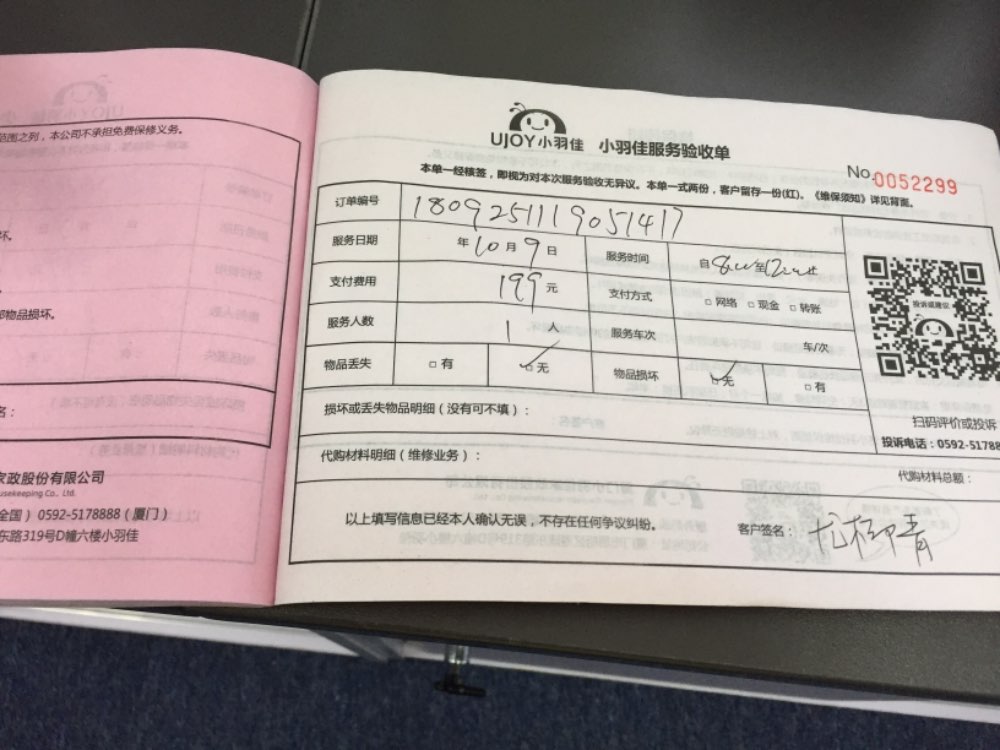 范围之列，本公司不承担免费保修义务。
坏。
部物品损坏。
名：
家政股份有限公司
usekeeping Co., Ltd.
全国）0592-5178888（厦门）
东路319号D幢六楼小羽佳
UJOY小羽佳 小羽佳服务验收单
No.0052299
本单一经核签，即视为对本次服务验收无异议。本单一式两份，客户留存一份(红)。《维保须知》详见背面。
订单编号 1809251119051417
服务日期 年10月9日 服务时间 自8:00至12:00止
支付费用 199元 支付方式 □网络 □现金 □转账
服务人数 1人 服务车次 车/次
物品丢失 □有 ☑无 物品损坏 ☑无 □有
投诉或建议
扫码评价或投诉
投诉电话：0592-51788
损坏或丢失物品明细（没有可不填）：
代购材料明细（维修业务）：
代购材料总额：
以上填写信息已经本人确认无误，不存在任何争议纠纷。
客户签名：尤柳青